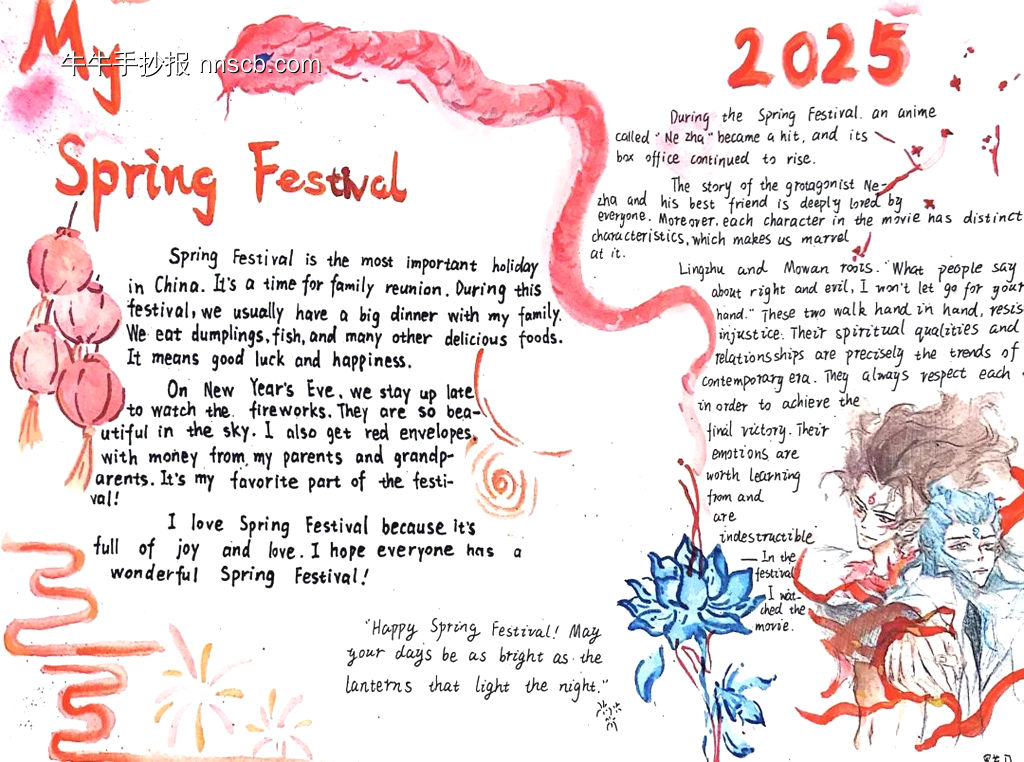 My
牛牛手抄报 nnscb.com
Spring Festival
Spring Festival is the most important holiday
in China. It's a time for family reunion. During this
festival, we usually have a big dinner with my family.
We eat dumplings, fish, and many other delicious foods.
It means good luck and happiness.
On New Year's Eve, we stay up late
to watch the fireworks. They are so bea-
utiful in the sky. I also get red envelopes
with money from my parents and grandp-
arents. It's my favorite part of the festi-
val!
I love Spring Festival because it's
full of joy and love. I hope everyone has a
wonderful Spring Festival!
"Happy Spring Festival! May
your days be as bright as the
lanterns that light the night."
2025
During the Spring Festival. an anime
called "Ne zha" became a hit, and its
box office continued to rise.
The story of the grotagonist Ne-
zha and his best friend is deeply loved by
everyone. Moreover, each character in the movie has distinct
characteristics, which makes us marvel
at it.
Lingzhu and Mowan roots. "What people say
about right and evil, I won't let go for your
hand." These two walk hand in hand, resis
injustice. Their spiritual qualities and
relationsships are precisely the trends of
contemporary era. They always respect each
in order to achieve the
final victory. Their
emotions are
worth learning
from and
are
indestructible
— In the
festival
I wat-
ched the
movie.